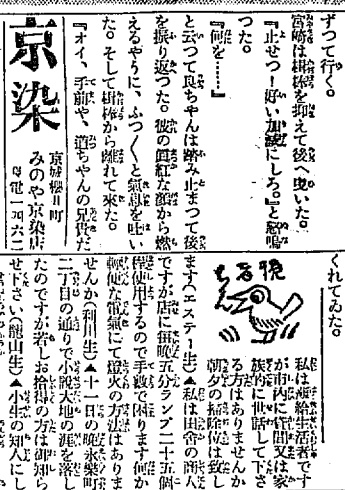 ずつて行く。
宮崎は梶棒を抑えて後へ曳いた。
『止せつ！好い加減にしろ。』と怒鳴
つた。
『何を……』
と云つて良ちやんは踏み止まつて後
を振り返つた。彼の眞紅な顔から燃
えるやうに、ふつ〳〵と氣息を吐い
た。そして梶棒から離れて來た。
『オイ、手前や、道ちやんの兄貴だ
京染
京城櫻井町
みのや京染店
電一四六二
くれてゐた。
私は恩給生活者です
が市内に貸間又は家
族的に世話して下さ
る方はありませんか
朝夕の掃除位は致し
ます(エステー生)▲私は田舎の商人
ですが店に毎晩五分ランプ二十五個
程使用するので手數で困ります何か
輕便な電氣にて燈火の方法はありま
せんか(利川生)▲十一日の晩永樂町
二丁目の通りで小說大地の涯を落し
たのですが若しお拾得の方は御知ら
せ下さい(館山生)▲小生の知人にし